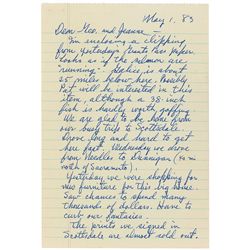 May 1, 83
Dear Geo. and Jeanne —
I'm enclosing a clipping
from yesterday's Grants Pass paper
looks as if the salmon are
"running". Galice is about
25 miles below here. Possibly
Pat will be interested in this
item, although a 38-inch
fish is hardly worth gaffing.
We are glad to be home from
our busy trip to Scottsdale.
Drove long and hard to get
here fast. Wednesday we drove
from Needles to Dunnigan (
north of Sacramento).
Yesterday we were shopping for
new furniture for this big house.
Saw chances to spend many
thousands of dollars. Have to
curb our fantasies.
The prints we signed in
Scottsdale are almost sold out.